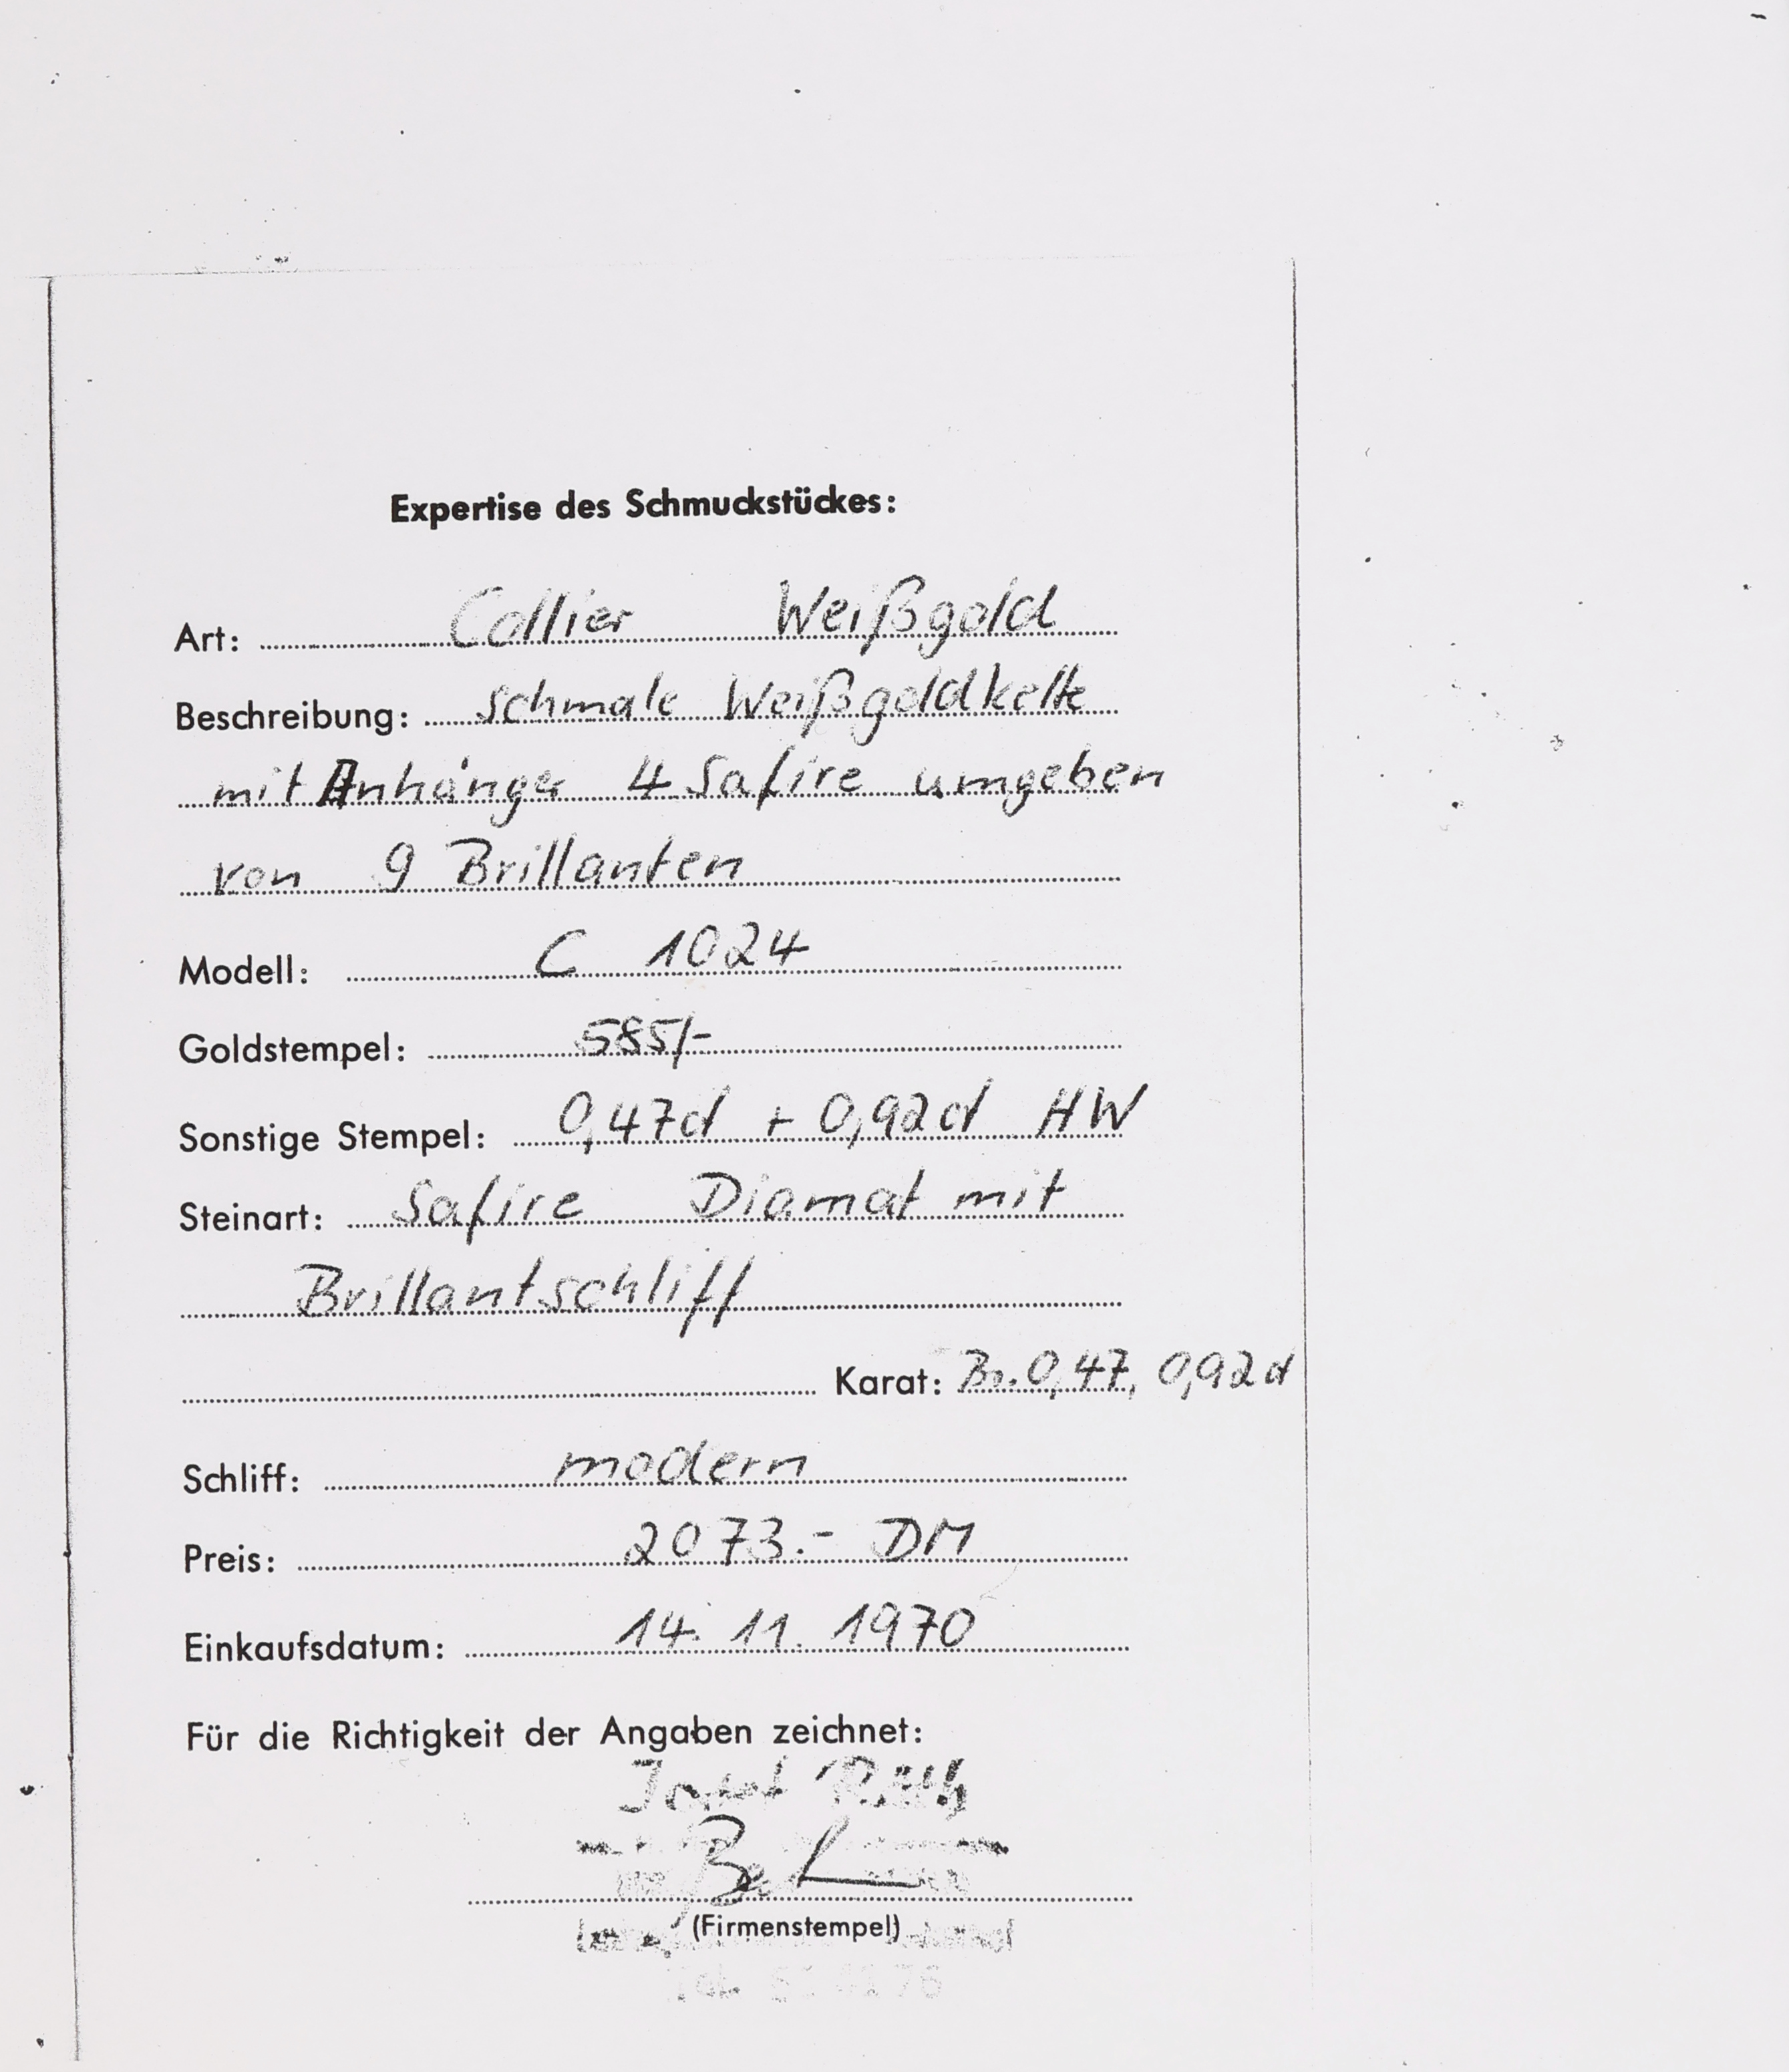 Expertise des Schmuckstückes:
Art: Collier Weißgold
Beschreibung: schmale Weißgoldkette
mit Anhänger 4 Safire umgeben
von 9 Brillanten
Modell: C 1024
Goldstempel: 585/-
Sonstige Stempel: 0,47ct + 0,92ct HW
Steinart: Safire Diamat mit
Brillantschliff
Karat: Br. 0,47, 0,92ct
Schliff: modern
Preis: 2073.- DM
Einkaufsdatum: 14. 11. 1970
Für die Richtigkeit der Angaben zeichnet:
(Firmenstempel)